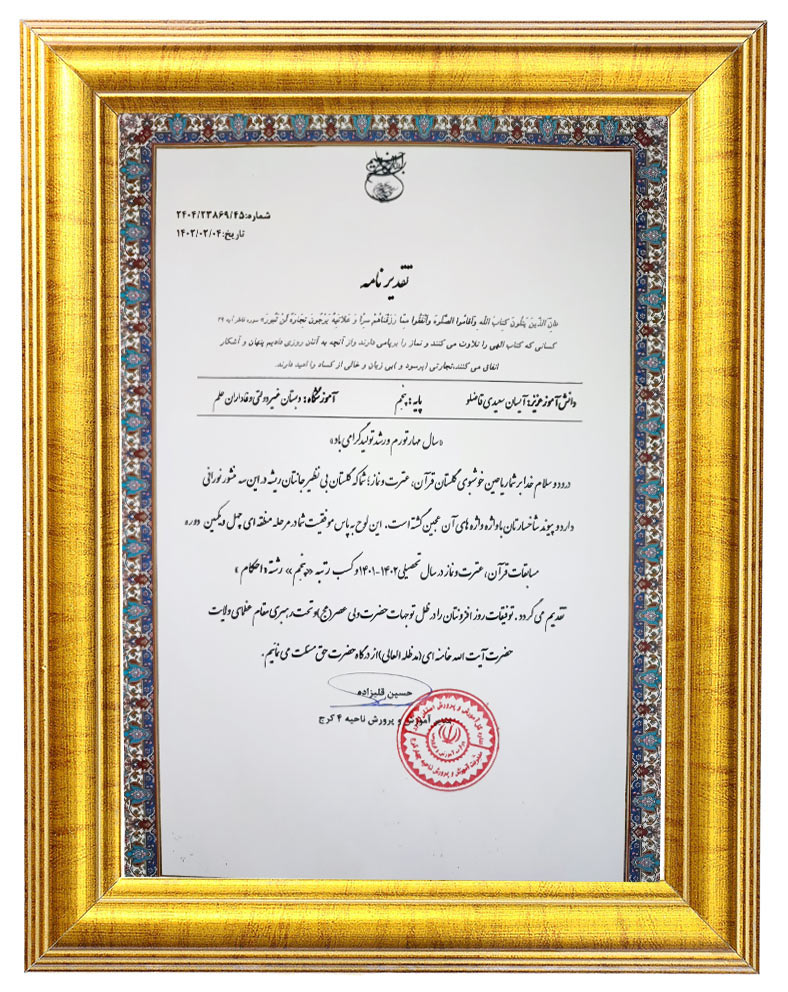 شماره:۲۴۰۴/۲۳۸۶۹/۴۵
تاریخ:۱۴۰۲/۰۲/۰۴
تقدیر نامه
«انّ الّذینَ یَتلُونَ کتابَ الله وَأقامُوا الصّلوةَ وأنفَقُوا مِمّا رَزَقناهُم سِرّاً وَ عَلانیَةً یَرجُونَ تِجارَةً لَن تَبُورَ» سوره فاطر آیه ۲۹
کسانی که کتاب الهی را تلاوت می کنند و نماز را برپامی دارند واز آنچه به آنان روزی دادیم پنهان و آشکار
انفاق می کنند،تجارتی (پرسود و )بی زیان و خالی از کساد را امید دارند.
دانش آموز عزیز: آیسان سعیدی قاضلو پایه: پنجم آموزشگاه: دبستان غیردولتی وفاداران علم
«سال مهار تورم و رشد تولید گرامی باد»
درود و سلام خدا بر شما ریاحین خوشبوی گلستان قرآن، عترت و نماز؛ شما که گلستان بی نظیر جانتان ریشه در این سه منشور نورانی
دارد و پیوند شاخسارتان با واژه واژه های آن عجین گشته است. این لوح به پاس موفقیت شما در مرحله منطقه ای چهل و یکمین دوره
مسابقات قرآن، عترت و نماز در سال تحصیلی ۱۴۰۲-۱۴۰۱ و کسب رتبه «پنجم» رشته «احکام»
تقدیم می گردد. توفیقات روز افزونتان را در ظل توجهات حضرت ولی عصر(عج)و تحت رهبری مقام عظمای ولایت
حضرت آیت الله خامنه ای(مدظله العالی)از درگاه حضرت حق مسئلت می نمائیم.
حسین قلیزاده
آموزش و پرورش ناحیه ۴ کرج